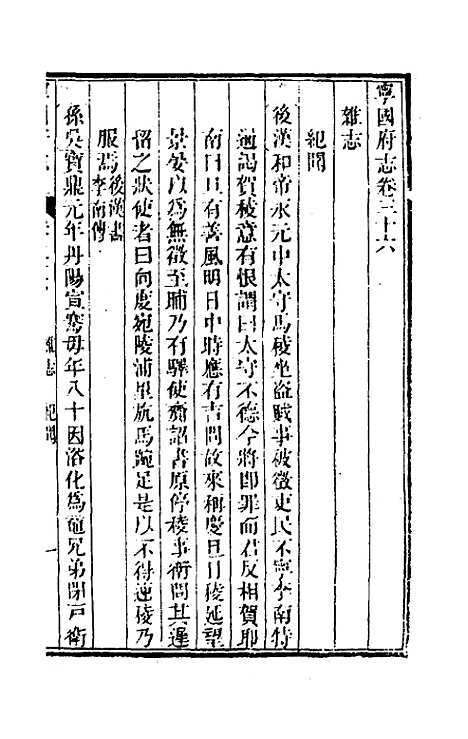 寧國府志卷三十六
雜志
紀聞
後漢和帝永元中太守馬稜坐盜賊事被徵吏民不寧李南特
通謁賀稜意有恨謂曰太守不德今將即罪而君反相賀耶
南曰旦有善風明日中時應有吉問故來稱慶旦日稜延望
景晏以為無徵至晡乃有驛使齎詔書原停稜事南問其遲
留之狀使者曰向度宛陵浦里𣃁馬踠足是以不得速稜乃
服焉後漢書李南傳
孫吳寶鼎元年丹陽宣騫母年八十因浴化為黿兄弟閉戶衛
雜志 紀聞 一